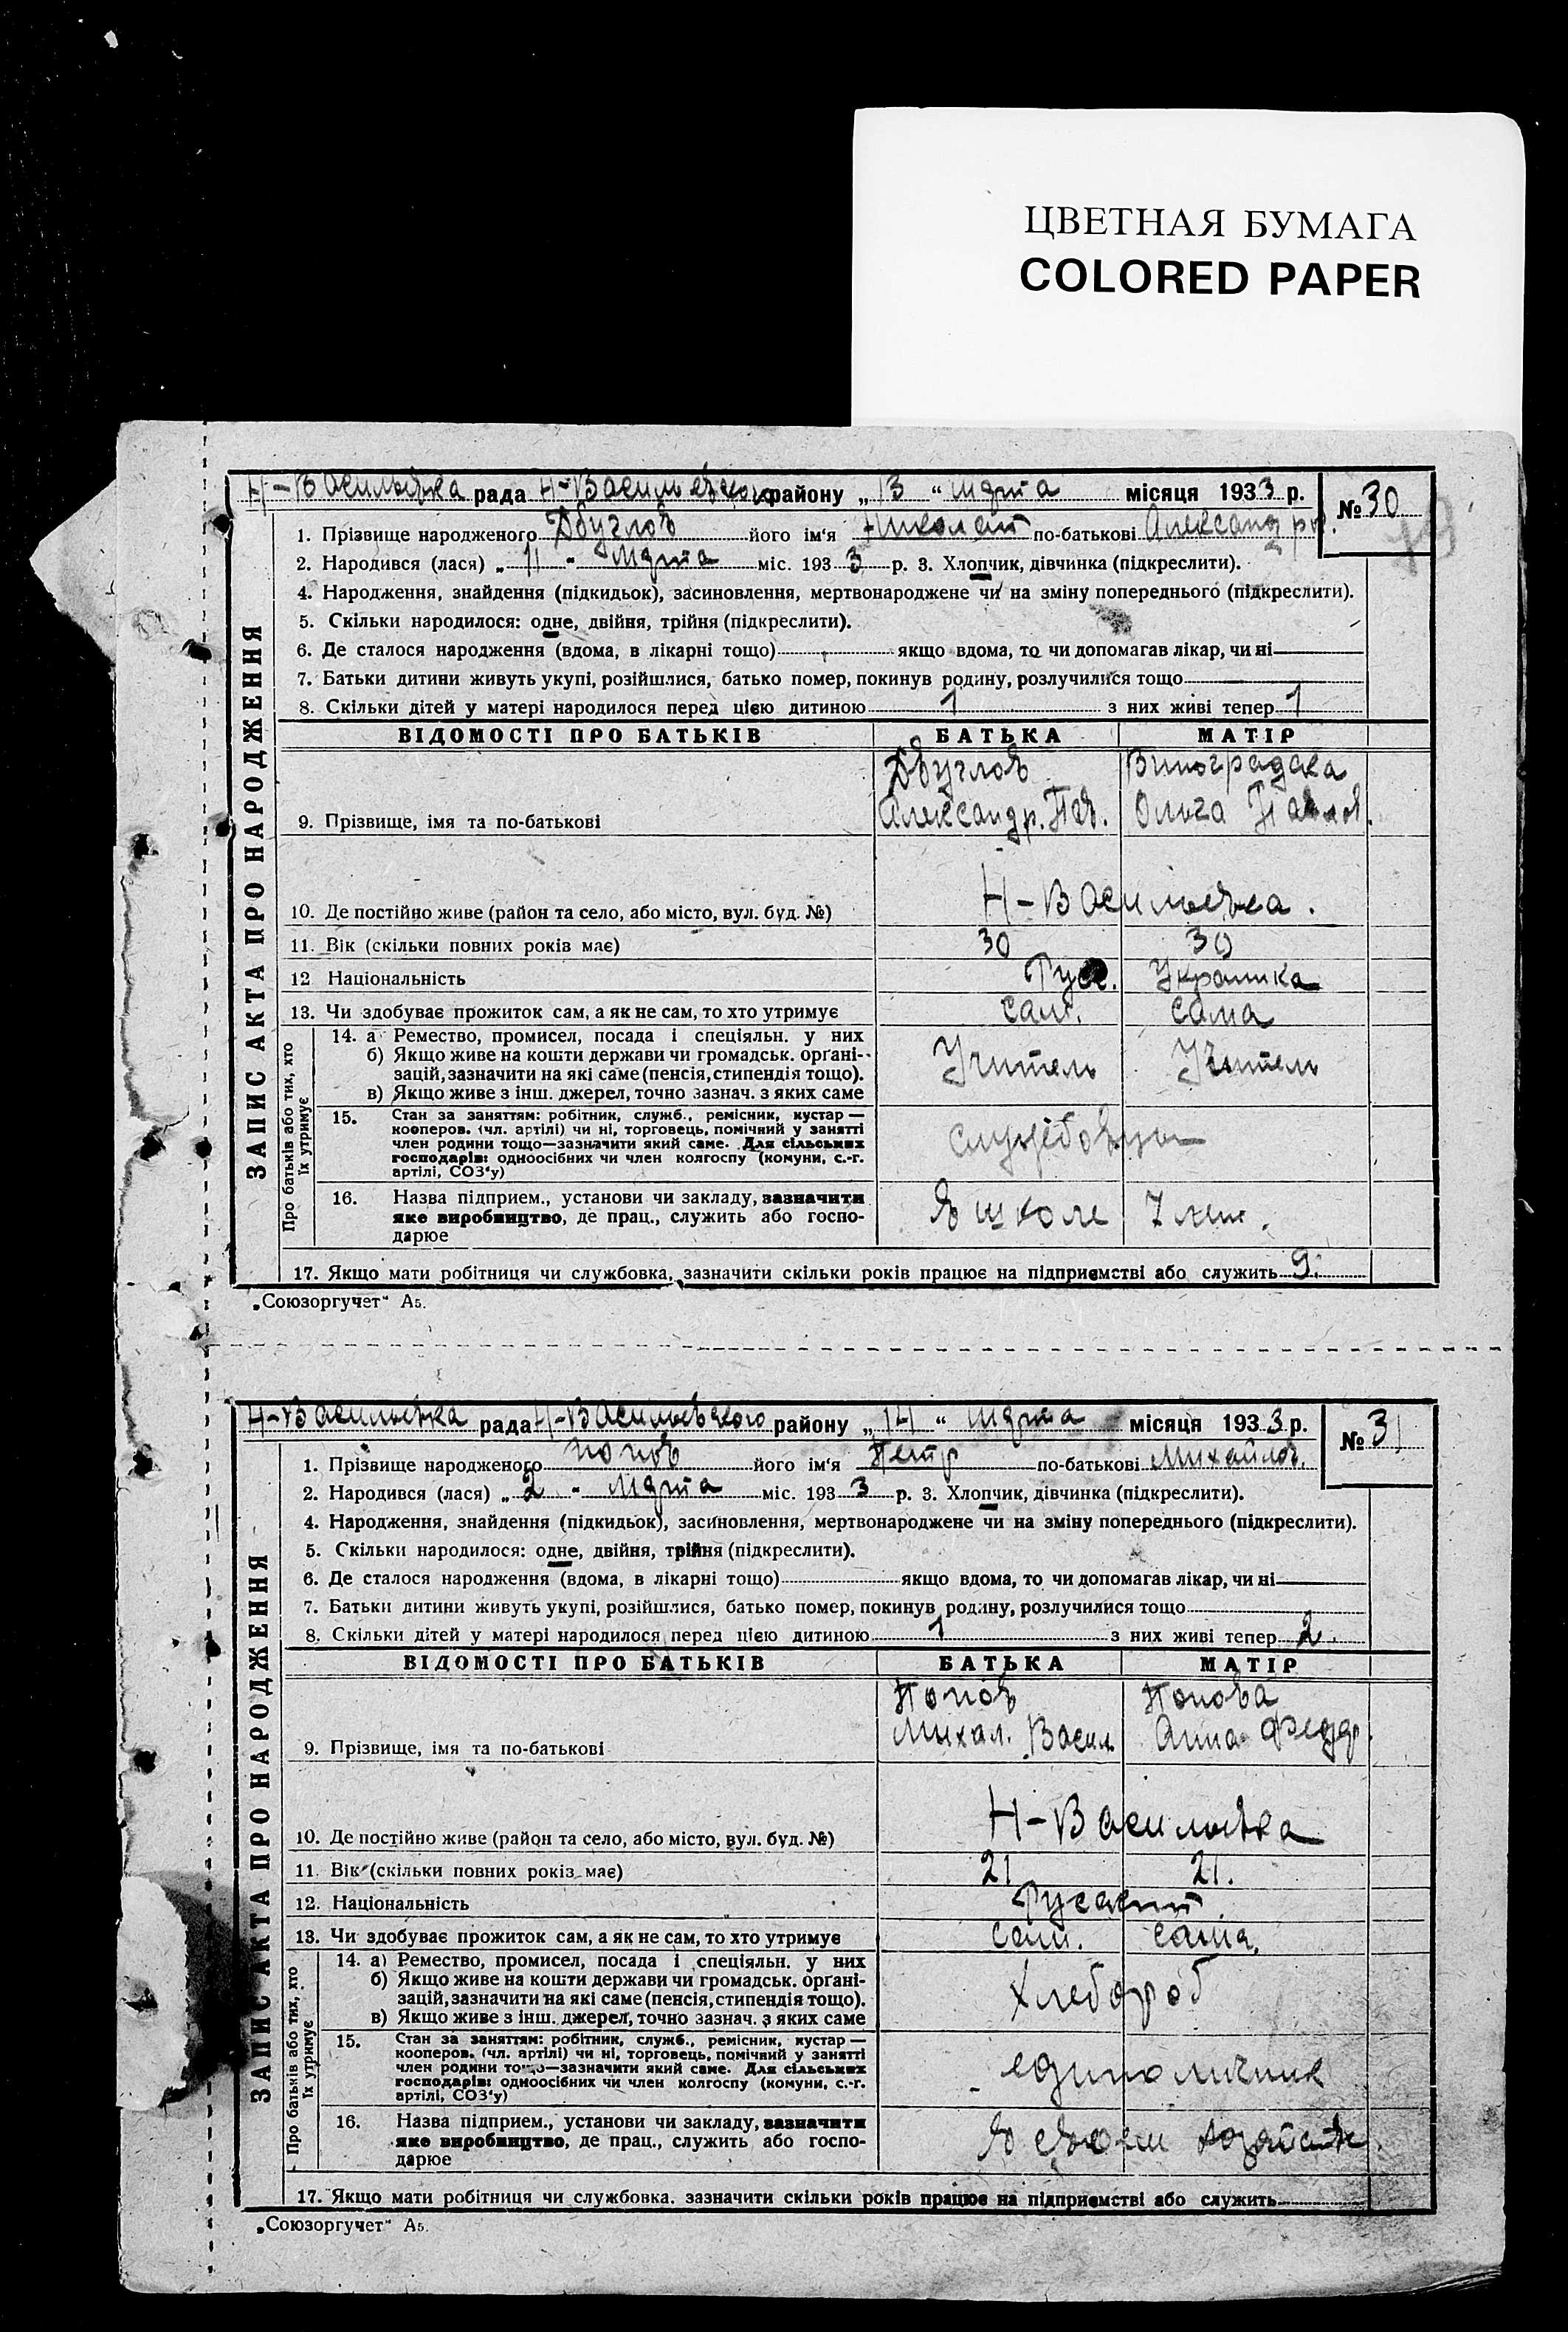 ЦВЕТНАЯ БУМАГА
COLORED PAPER
Н-Васильевка рада Н-Васильевского району „ 13 “ марта місяця 1933 р.
№ 30
1. Прізвище народженого Двуглов його ім'я Николай по-батькові Александров.
2. Народився (лася) „ 11 - марта міс. 193 3 р. 3. Хлопчик, дівчинка (підкреслити).
4. Народження, знайдення (підкидьок), засиновлення, мертвонароджене чи на зміну попереднього (підкреслити).
5. Скільки народилося: одне, двійня, трійня (підкреслити).
6. Де сталося народження (вдома, в лікарні тощо) якщо вдома, то чи допомагав лікар, чи ні
7. Батьки дитини живуть укупі, розійшлися, батько помер, покинув родину, розлучилися тощо
8. Скільки дітей у матері народилося перед цією дитиною 1 з них живі тепер 1
ЗАПИС АКТА ПРО НАРОДЖЕННЯ
ВІДОМОСТІ ПРО БАТЬКІВ БАТЬКА МАТІР
Двуглов Виноградова
9. Прізвище, імя та по-батькові Александр. Пав. Ольга Павлов.
10. Де постійно живе (район та село, або місто, вул. буд. №) Н-Васильевка.
11. Вік (скільки повних років має) 30 30
12 Національність Русс. Украинка
13. Чи здобуває прожиток сам, а як не сам, то хто утримує сам. сама
Про батьків або тих, хто їх утримує
14. а Ремество, промисел, посада і спеціяльн. у них
б) Якщо живе на кошти держави чи громадськ. органі-
зацій, зазначити на які саме (пенсія, стипендія тощо). Учитель Учитель
в) Якщо живе з інш. джерел, точно зазнач. з яких саме
15. Стан за заняттям: робітник, служб., ремісник, кустар —
кооперов. (чл. артілі) чи ні, торговець, помічний у занятті
член родини тощо—зазначити який саме. Для сільських
господарів: одноосібних чи член колгоспу (комуни, с.-г.
артілі, СОЗ'у)
16. Назва підприєм., установи чи закладу, зазначити
яке виробництво, де прац., служить або госпо- В школе 7 лет.
дарює
17. Якщо мати робітниця чи службовка, зазначити скільки років працює на підприємстві або служить 9.
„Союзоргучет“ А5.
Н-Васильевка рада Н-Васильевского району „ 14 “ марта місяця 1933 р.
№ 31
1. Прізвище народженого Попов його ім'я Петр по-батькові Михайлов.
2. Народився (лася) „ 2 - марта міс. 193 3 р. 3. Хлопчик, дівчинка (підкреслити).
4. Народження, знайдення (підкидьок), засиновлення, мертвонароджене чи на зміну попереднього (підкреслити).
5. Скільки народилося: одне, двійня, трійня (підкреслити).
6. Де сталося народження (вдома, в лікарні тощо) якщо вдома, то чи допомагав лікар, чи ні
7. Батьки дитини живуть укупі, розійшлися, батько помер, покинув родину, розлучилися тощо
8. Скільки дітей у матері народилося перед цією дитиною 1 з них живі тепер 2.
ЗАПИС АКТА ПРО НАРОДЖЕННЯ
ВІДОМОСТІ ПРО БАТЬКІВ БАТЬКА МАТІР
Попов Попова
9. Прізвище, імя та по-батькові Михал. Васил Анна Федор.
10. Де постійно живе (район та село, або місто, вул. буд. №) Н-Васильевка
11. Вік (скільки повних років має) 21 21.
12. Національність
13. Чи здобуває прожиток сам, а як не сам, то хто утримує сам. сама.
Про батьків або тих, хто їх утримує
14. а) Ремество, промисел, посада і спеціяльн. у них
б) Якщо живе на кошти держави чи громадськ. органі-
зацій, зазначити на які саме (пенсія, стипендія тощо). Хлебороб
в) Якщо живе з інш. джерел, точно зазнач. з яких саме
15. Стан за заняттям: робітник, служб., ремісник, кустар —
кооперов. (чл. артілі) чи ні, торговець, помічний у занятті
член родини тощо—зазначити який саме. Для сільських единоличник
господарів: одноосібних чи член колгоспу (комуни, с.-г.
артілі, СОЗ'у)
16. Назва підприєм., установи чи закладу, зазначити
яке виробництво, де прац., служить або госпо- В своем хозяйстве.
дарює
17. Якщо мати робітниця чи службовка, зазначити скільки років працює на підприємстві або служить
„Союзоргучет“ А5.